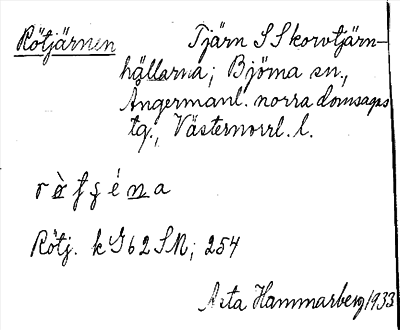 Rötjärnen Tjärn S Skorvtjärn-
hällarna; Björna sn.,
Ångermanl. norra domsagas
tg., Västernorrl. l.
Rötj. k G 62 SN; 254
Asta Hammarberg 1933